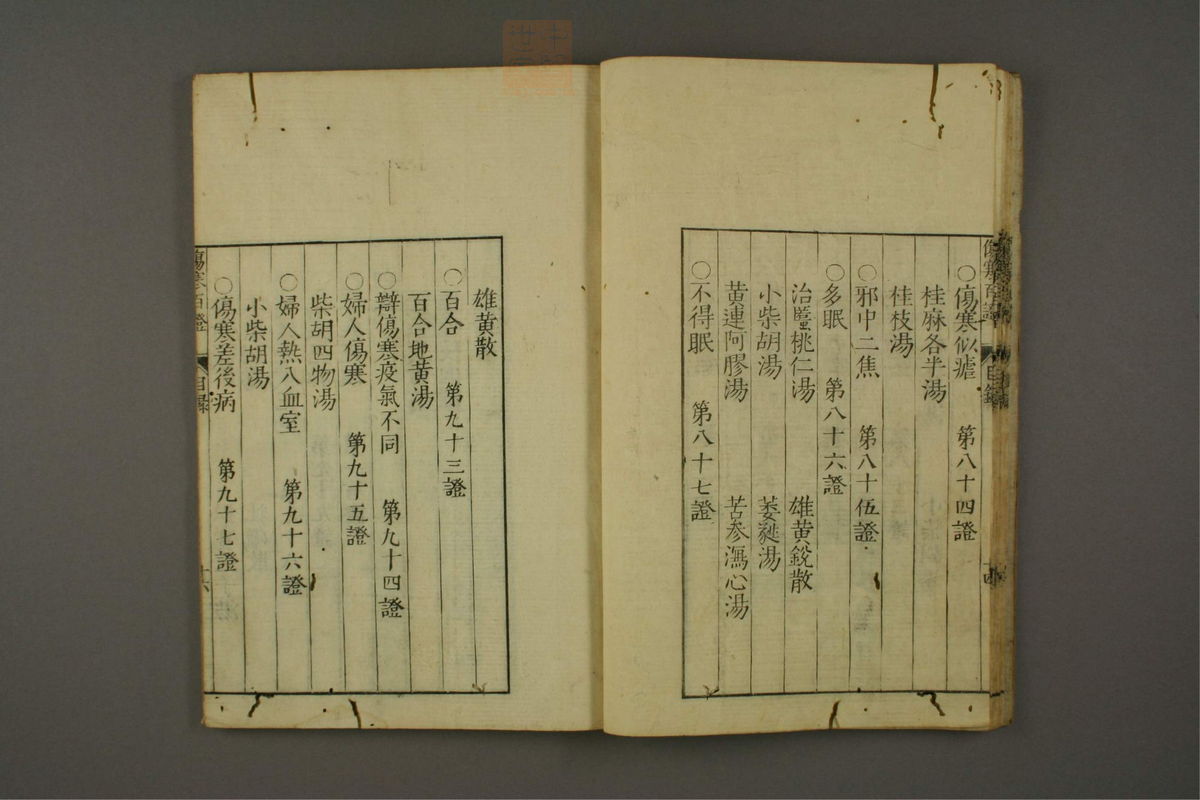 ○傷寒似瘧 第八十四證
桂麻各半湯
桂枝湯
○邪中二焦 第八十伍證
○多眠 第八十六證
治䘌桃仁湯 雄黄銳散
小柴胡湯 萎蕤湯
黄連阿膠湯 苦参瀉心湯
○不得眠 第八十七證
雄黄散
○百合 第九十三證
百合地黄湯
○辯傷寒疫氣不同 第九十四證
○婦人傷寒 第九十五證
柴胡四物湯
○婦人熱入血室 第九十六證
小柴胡湯
○傷寒差後病 第九十七證
傷寒百證 目録